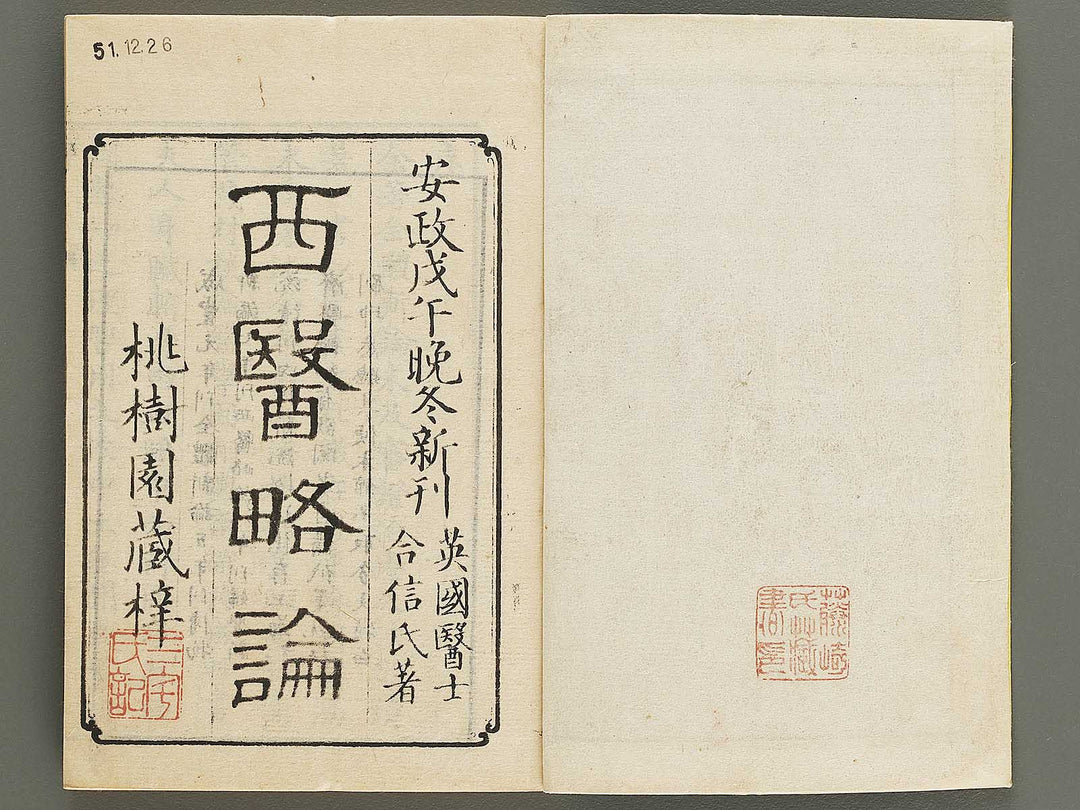 51.12.26
安政戊午晚冬新刊
英國醫士
合信氏著
西醫略論
桃樹園藏梓